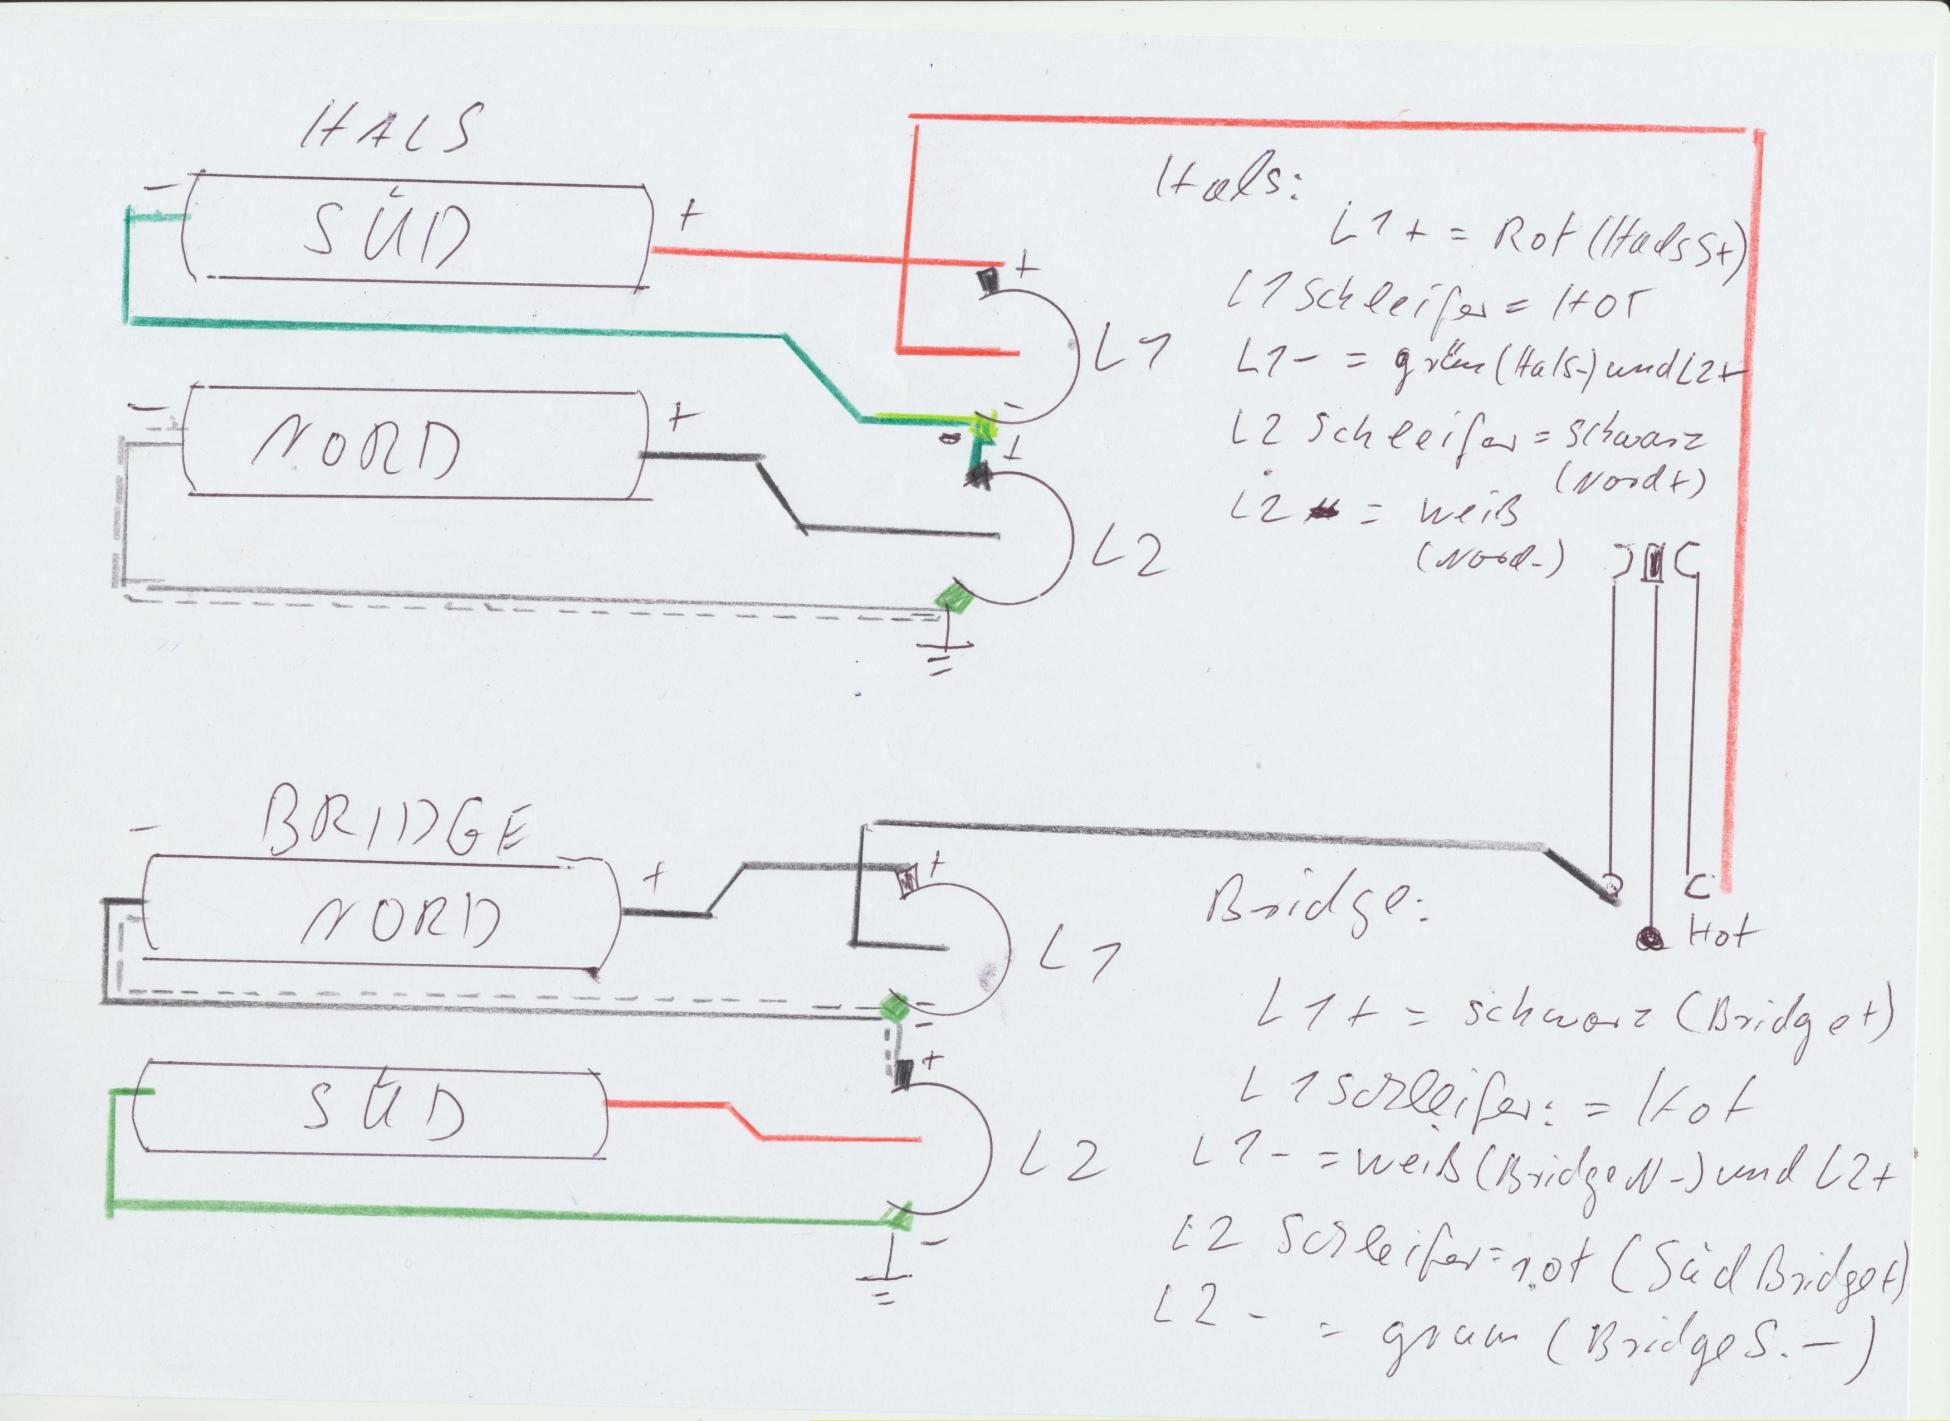 HALS
-
SÜD
+
+
L1
-
-
NORD
+
-
+
L2
Hals:
L1+ = Rot (HalsS+)
L1 Schleifer = HOT
L1- = grün (Hals-) und L2+
L2 Schleifer = schwarz
(Nord+)
L2 = weiß
(Nord-)
-
BRIDGE
NORD
+
+
L1
-
-
+
SÜD
L2
-
C
Hot
Bridge:
L1+ = schwarz (Bridge+)
L1 Schleifer: = Hot
L1- = weiß (BridgeN-) und L2+
L2 Schleifer = rot (Süd Bridge+)
L2- = gruen (BridgeS.-)